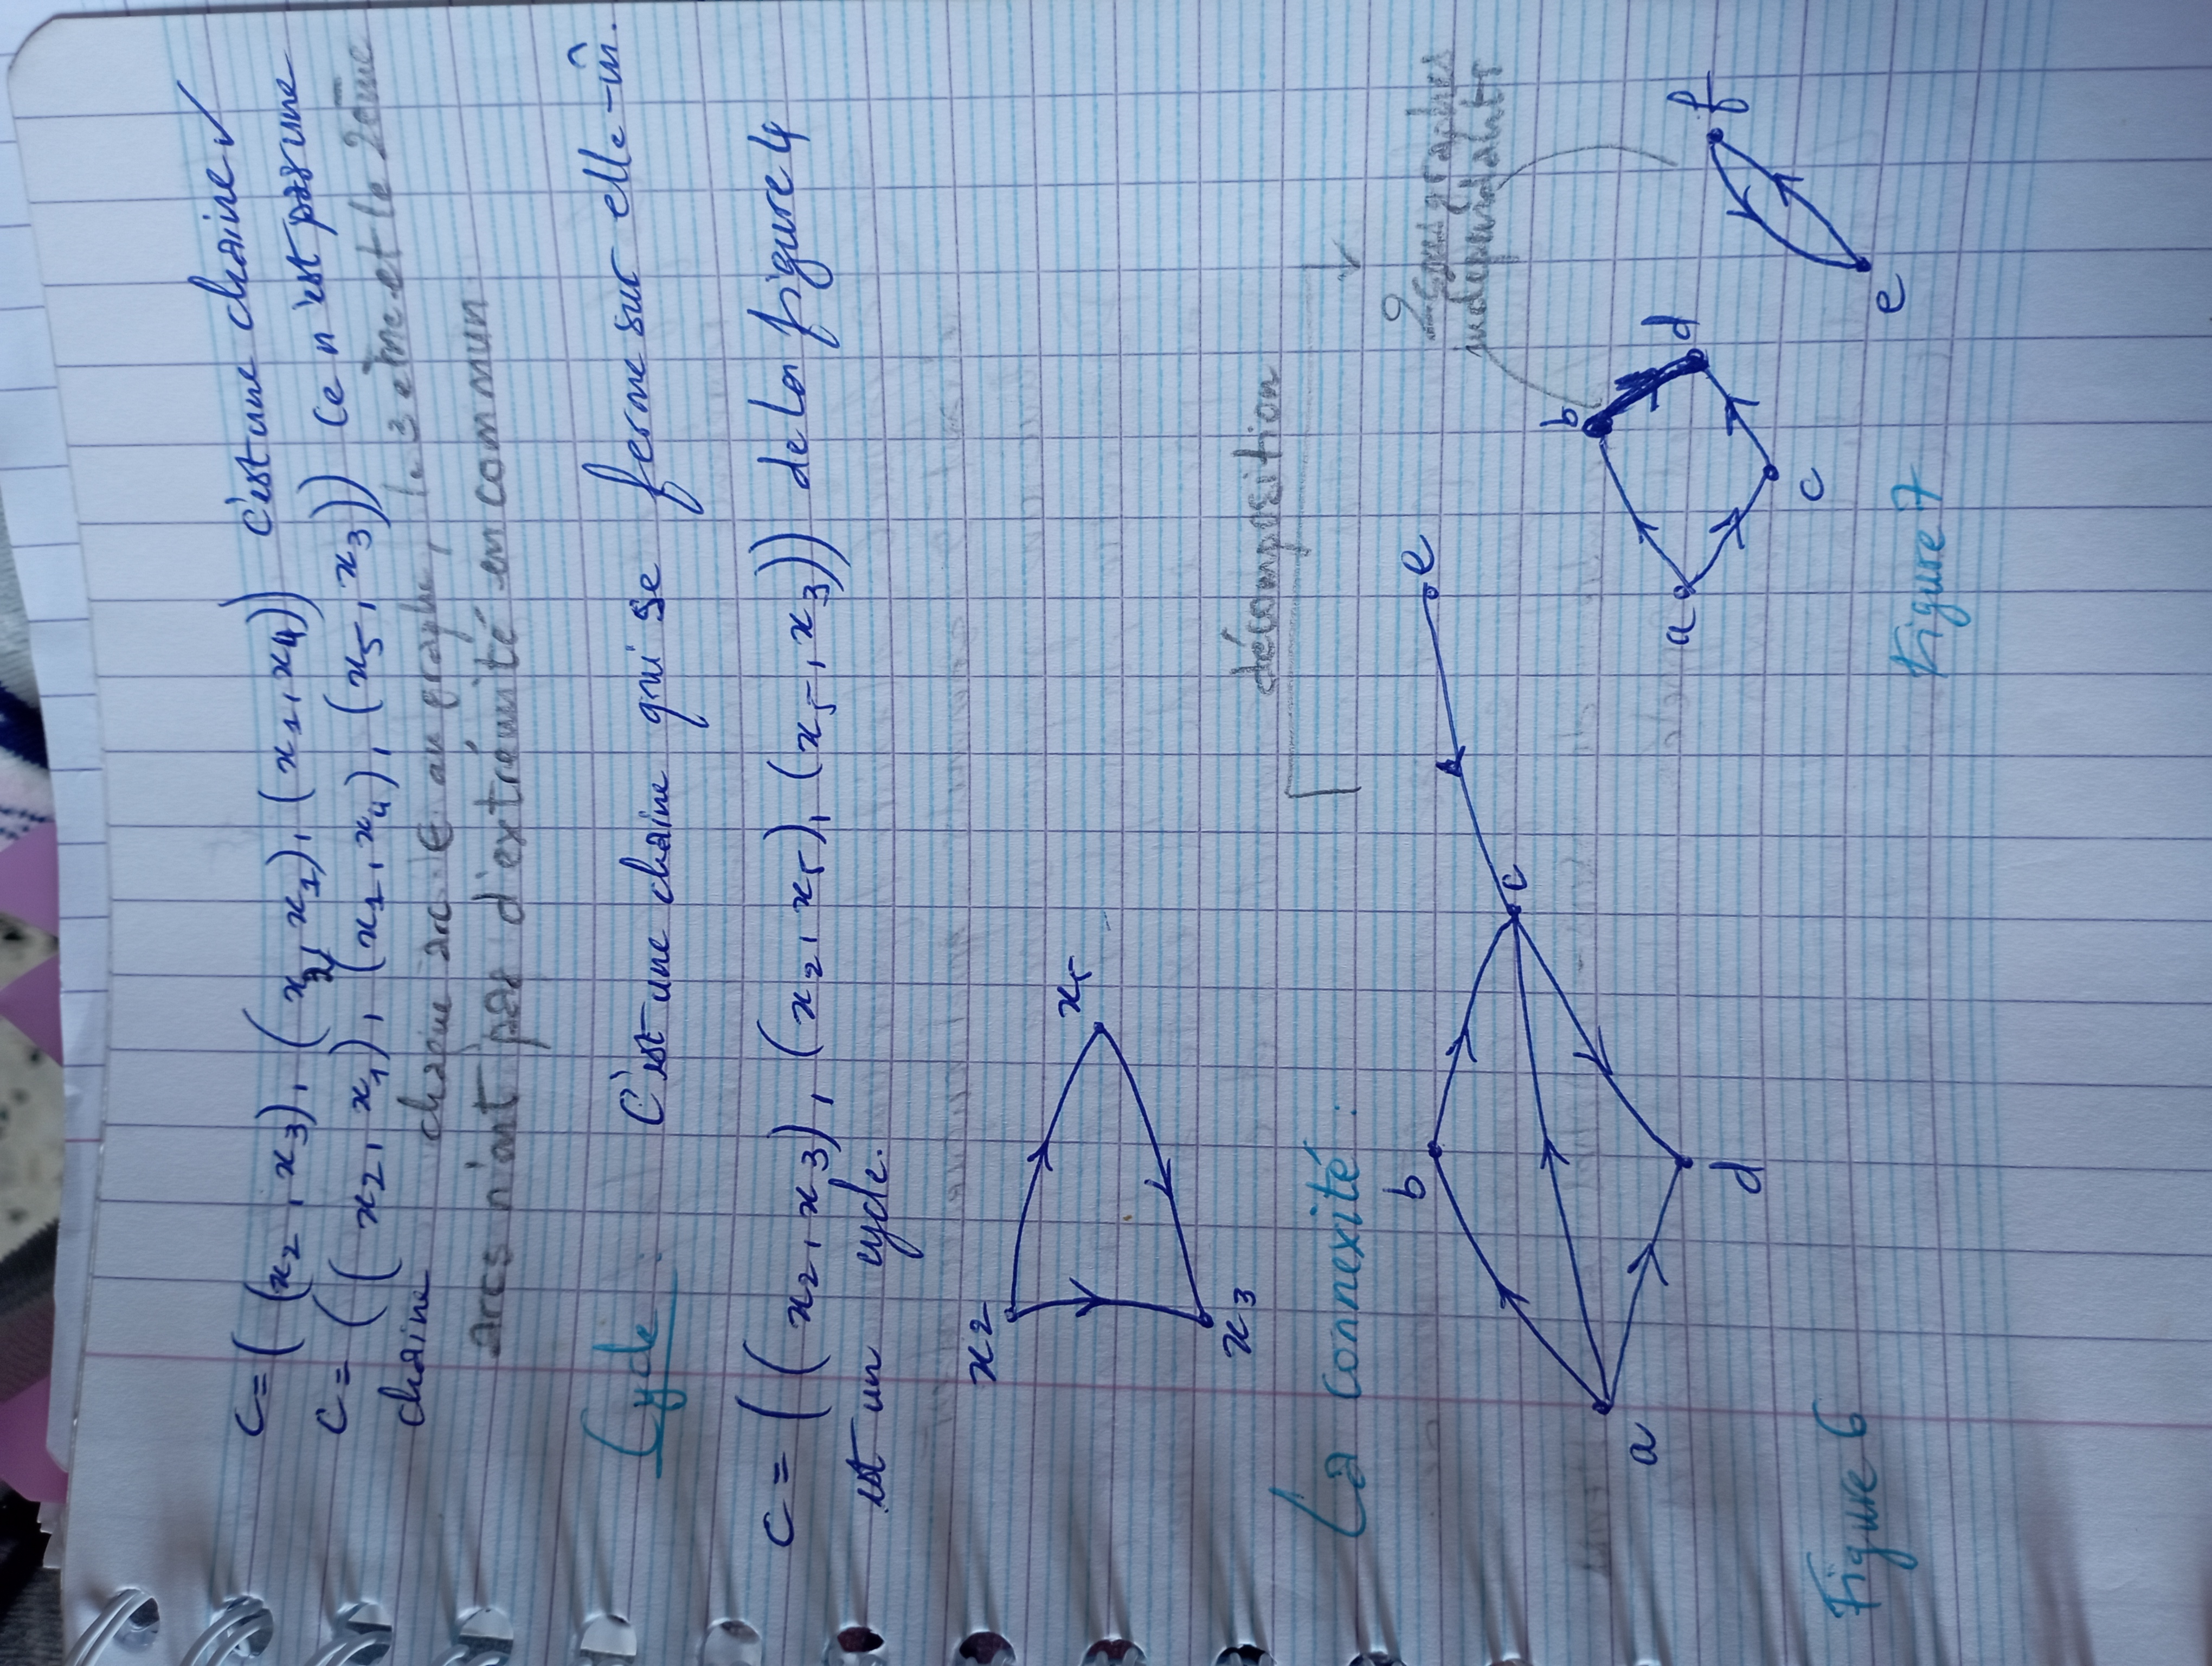 C = ((x2, x3), (x2, x1), (x1, x4)) C'est une chaine ✓
C = ((x2, x1), (x1, x4), (x5, x3)) Ce n'est pas une
chaine chaine au graphe, le 3ème et le 2ème
arcs n'ont pas d'extrémité en commun
Cycle : C'est une chaine qui se ferme sur elle-m̂.
C = ((x2, x3), (x2, x5), (x5, x3)) de la figure 4
est un cycle.
x2
x3
x5
La connexité :
décomposition
a
b
c
d
e
a
b
c
d
e
f
2 sous graphes
indépendants
Figure 6
Figure 7